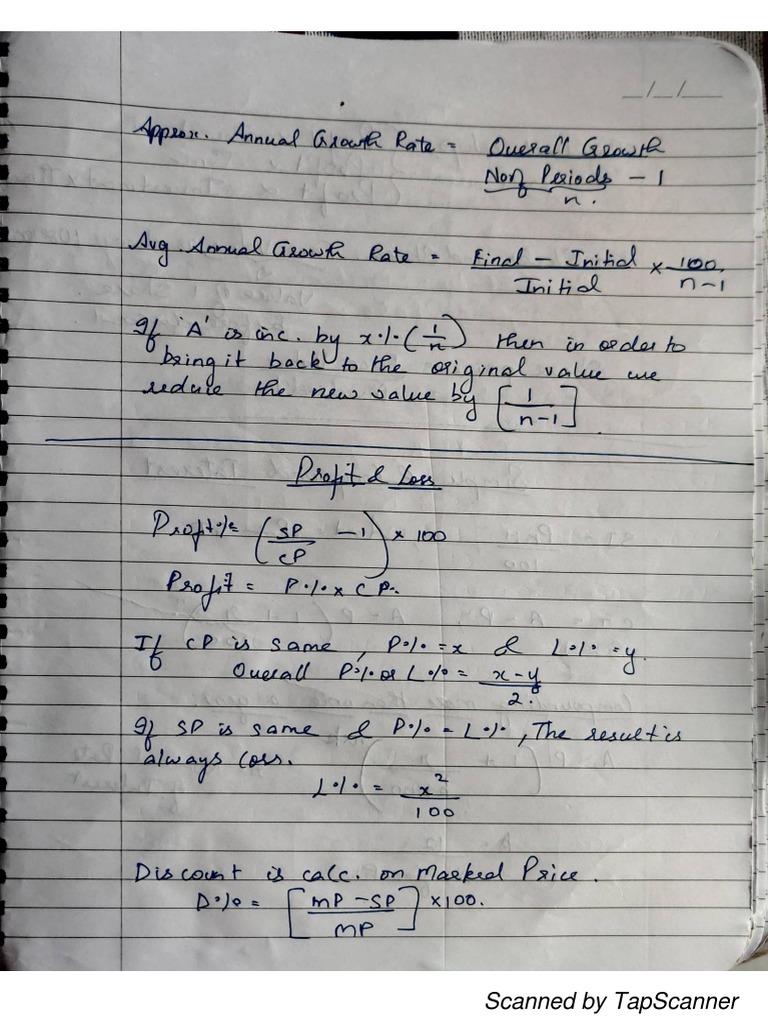 _/_/_
Approx. Annual Growth Rate = Overall Growth
No of Periods - 1
n.
Avg. Annual Growth Rate = Final - Initial × 100
Initial n-1
If 'A' is inc. by x% (1/n) then in order to
bring it back to the original value we
reduce the new value by [1/n-1]
Profit & Loss
Profit% = (SP/CP - 1) × 100
Profit = P% × CP.
If CP is same, P% = x & L% = y.
Overall P% or L% = x-y/2.
If SP is same & P% = L%, The result is
always loss.
L% = x²/100
Discount is calc. on Marked Price.
D% = [MP - SP/MP] × 100.
Scanned by TapScanner